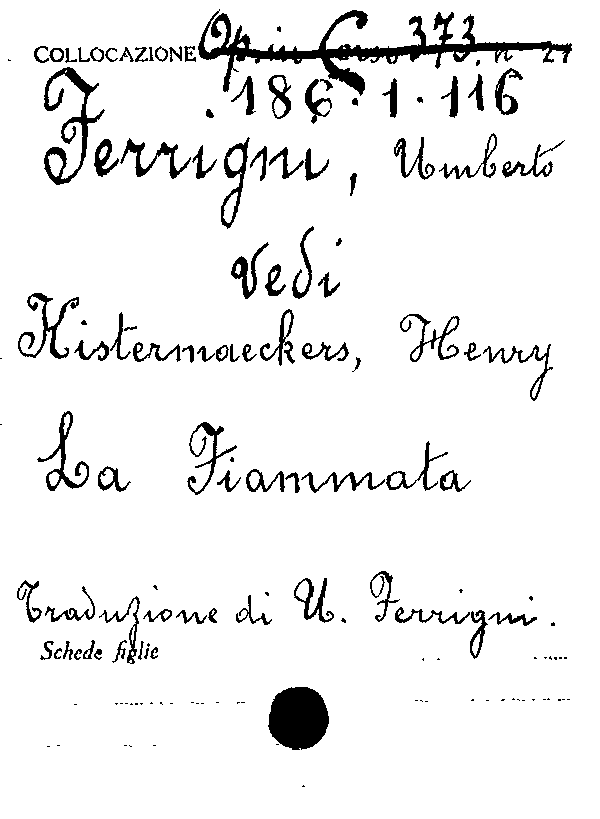 COLLOCAZIONE Op. in Corso 373. n 27
186.1.116
Ferrigni, Umberto
vedi
Kistermaeckers, Henry
La Fiammata
Traduzione di U. Ferrigni.
Schede figlie